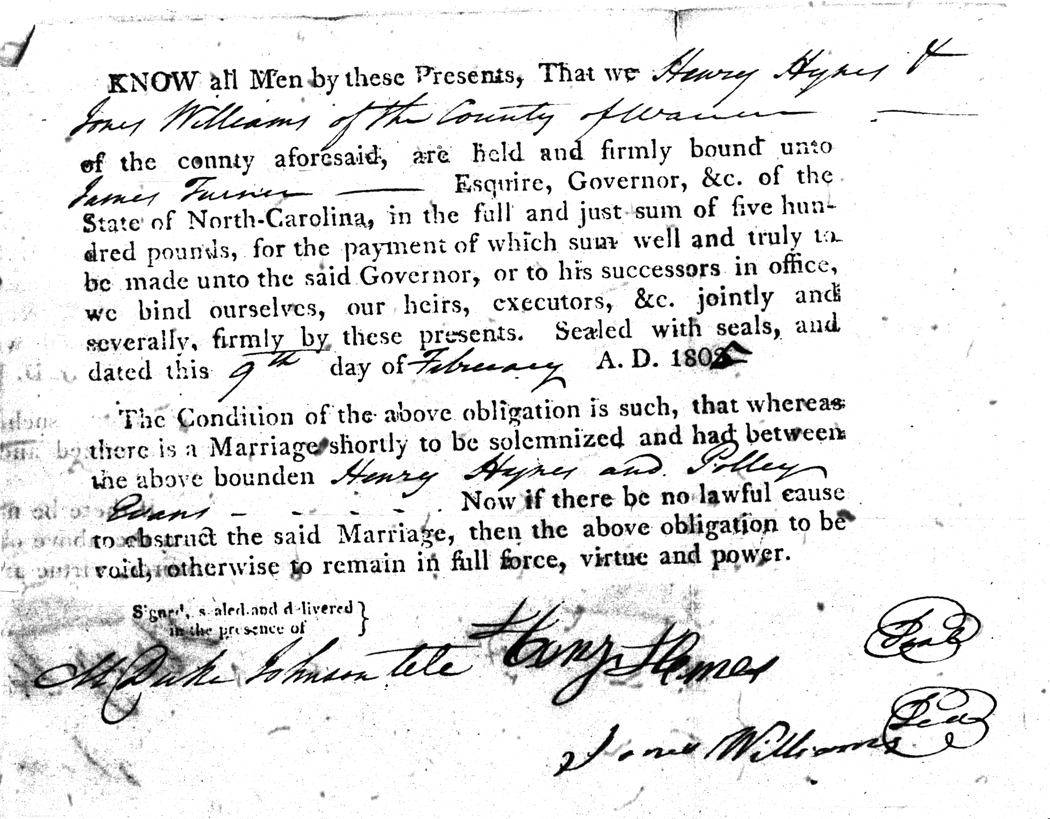 KNOW all Men by these Presents, That we Henry Hynes &
Jones Williams of the County of Warren
of the county aforesaid, are held and firmly bound unto
James Turner — Esquire, Governor, &c. of the
State of North-Carolina, in the full and just sum of five hun-
dred pounds, for the payment of which sum well and truly to
be made unto the said Governor, or to his successors in office,
we bind ourselves, our heirs, executors, &c. jointly and
severally, firmly by these presents. Sealed with seals, and
dated this 9th day of February A. D. 180
The Condition of the above obligation is such, that whereas
there is a Marriage shortly to be solemnized and had between
the above bounden Henry Hynes and Polley
Evans - - - - . Now if there be no lawful cause
to obstruct the said Marriage, then the above obligation to be
void, otherwise to remain in full force, virtue and power.
Signed, sealed and delivered }
in the presence of
M Duke Johnson Henry
Seal
Jones Williams Seal